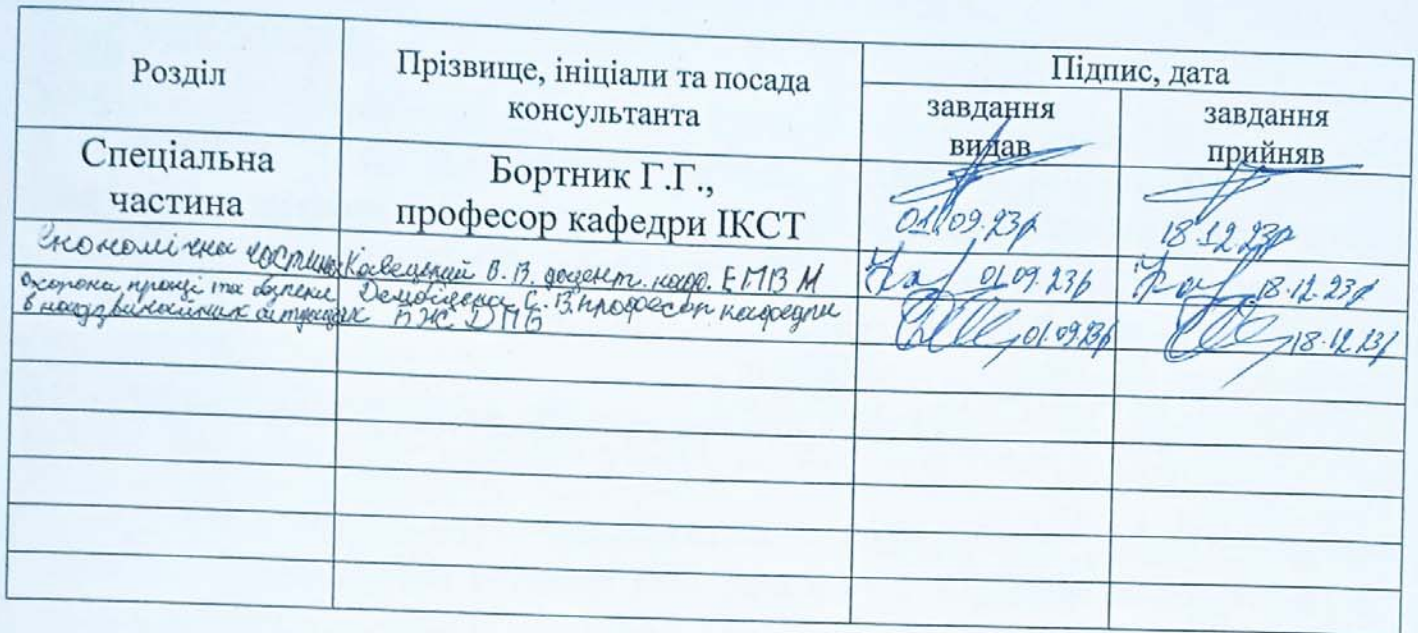 Розділ
Прізвище, ініціали та посада
консультанта
Підпис, дата
завдання
видав
завдання
прийняв
Спеціальна
частина
Бортник Г.Г.,
професор кафедри ІКСТ
01.09.23р
18.12.23р
Економічна частина Кавецький В.В. доцент. каф. ЕПВМ
01.09.23р
18.12.23р
Охорона праці та безпеки
в надзвичайних ситуаціях
С.В. професор кафедри
БЖДПБ
01.09.23р
18.12.23р